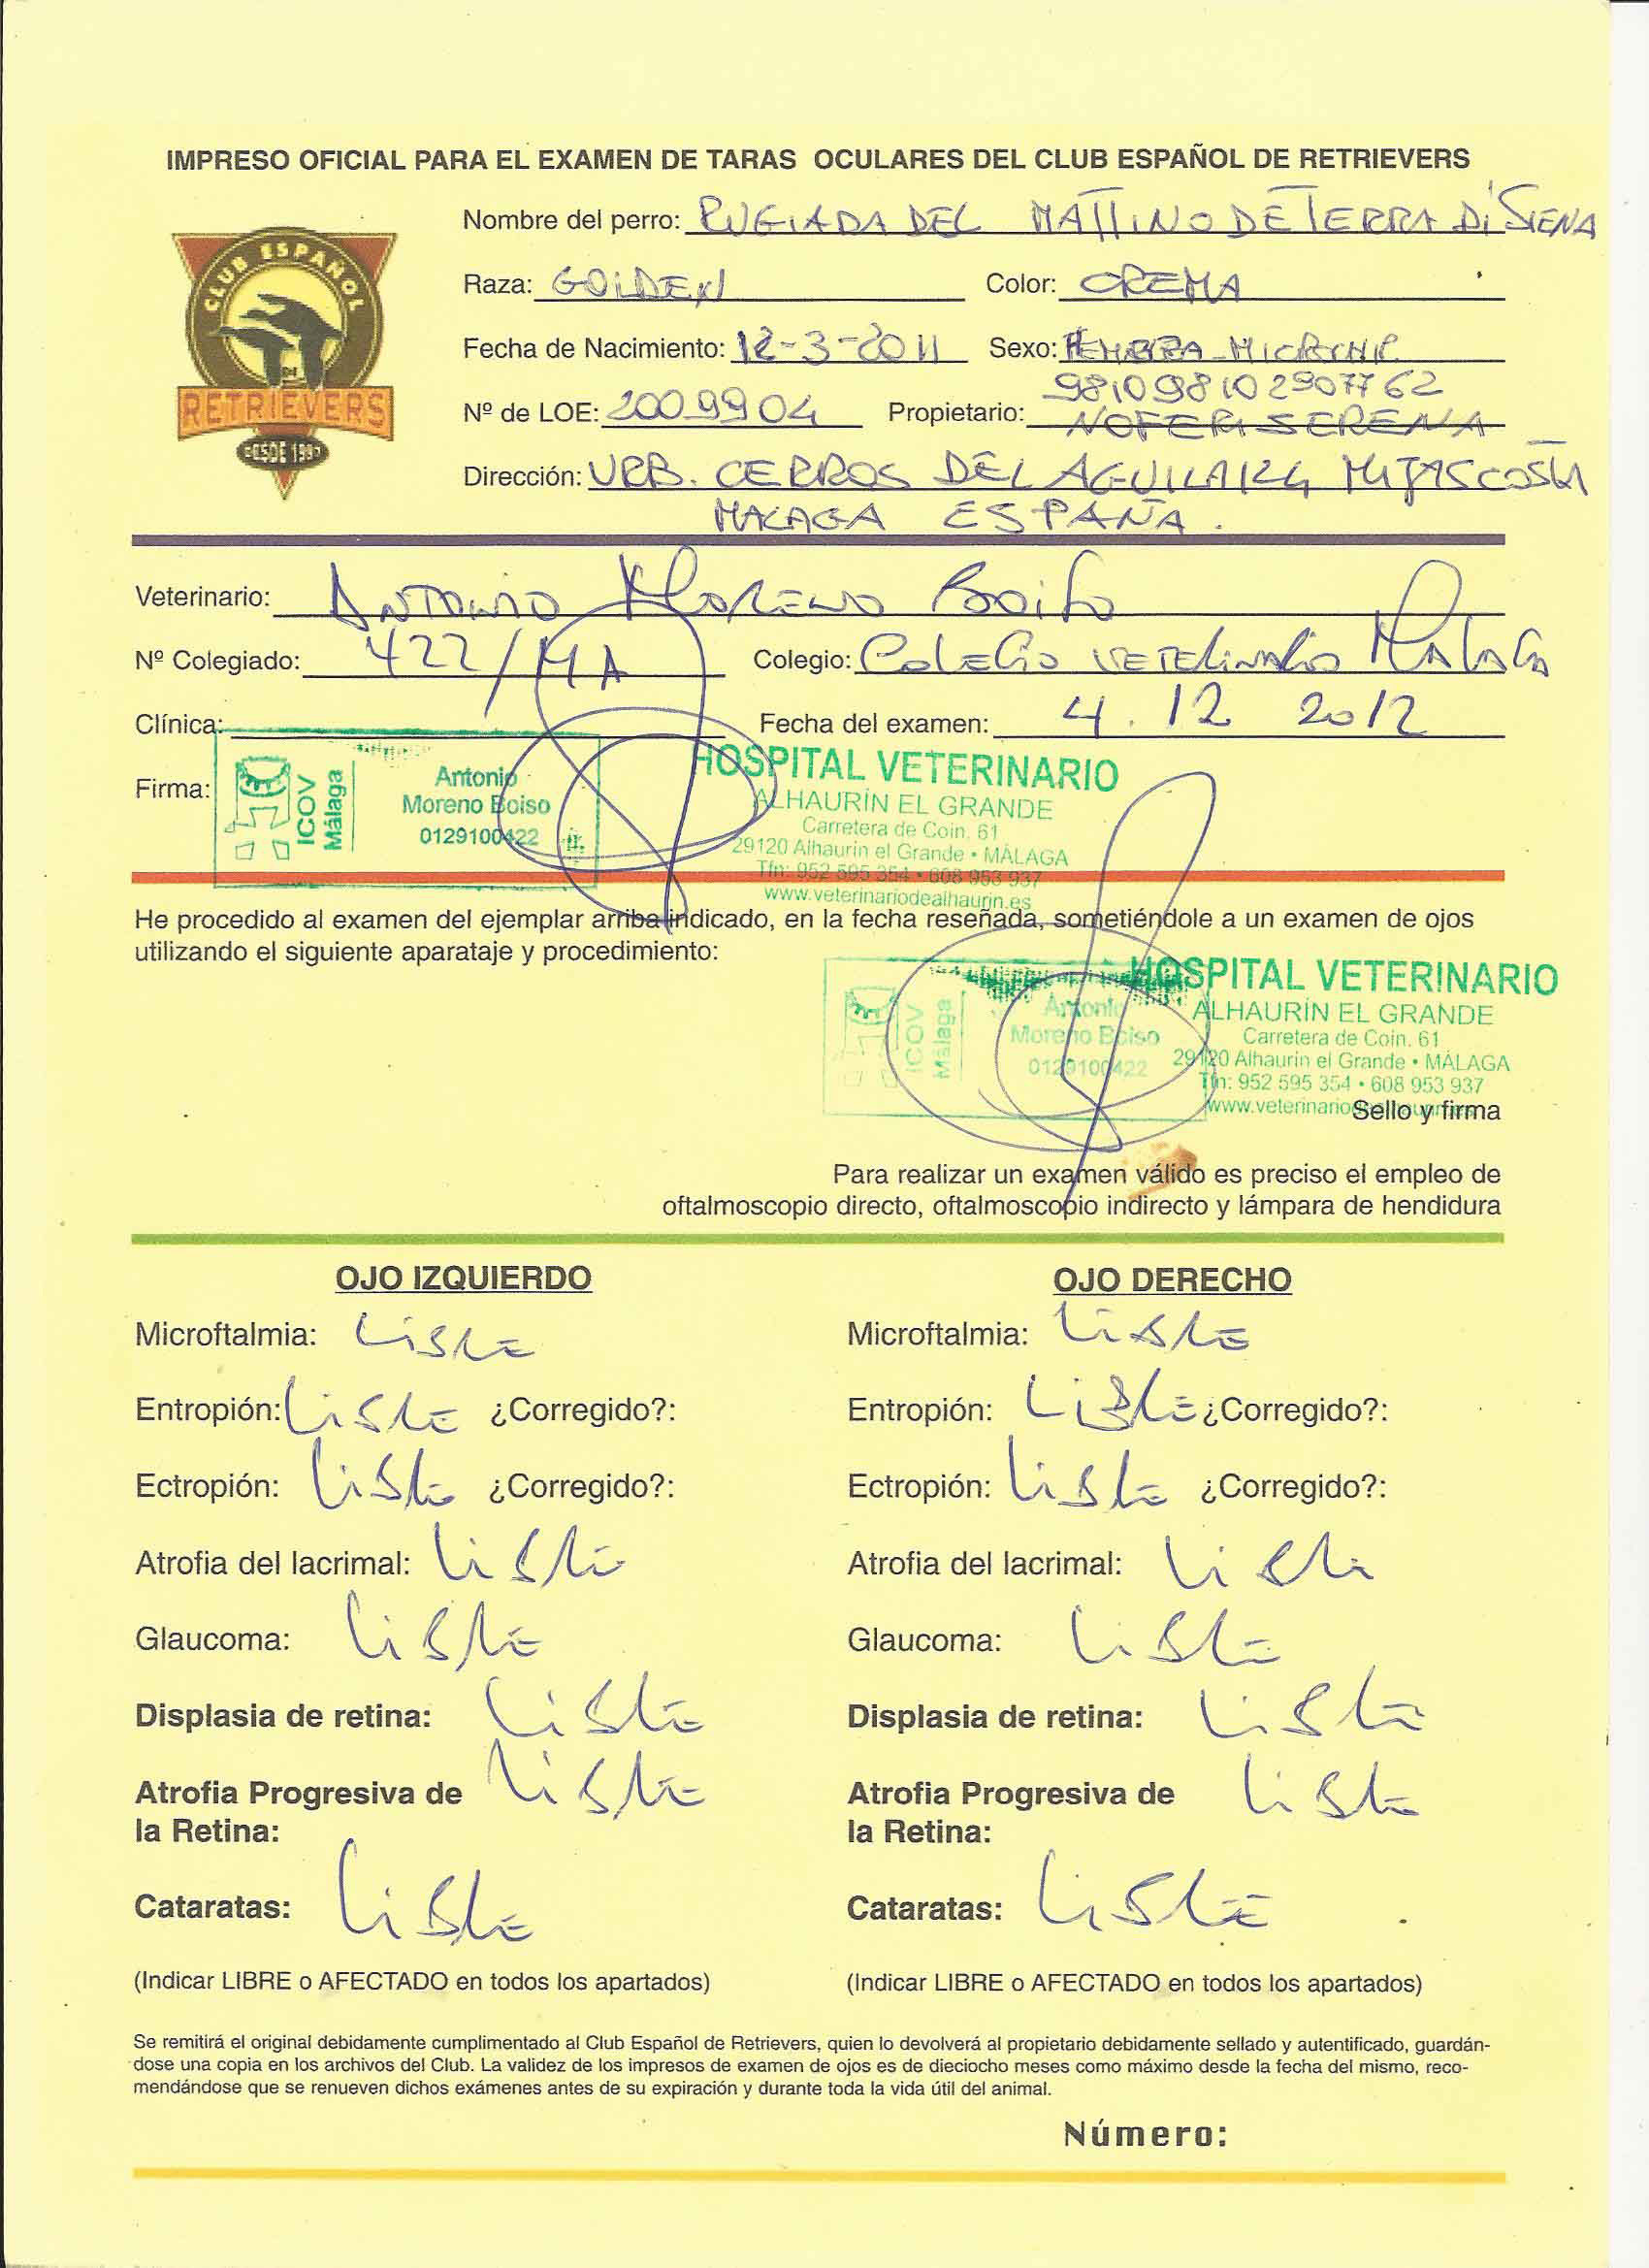 IMPRESO OFICIAL PARA EL EXAMEN DE TARAS OCULARES DEL CLUB ESPAÑOL DE RETRIEVERS
CLUB ESPAÑOL
DE
RETRIEVERS
DESDE 1997
Nombre del perro: RUGIADA DEL MATTINO DE TERRA DI SIENA
Raza: GOLDEN Color: CREMA
Fecha de Nacimiento: 12-3-2011 Sexo: HEMBRA - MICROCHIP.
981098102907762
Nº de LOE: 2009904 Propietario: NOFERI SERENA
Dirección: URB. CERROS DEL AGUILA 124 MIJAS COSTA
MALAGA ESPAÑA.
Veterinario: ANTONIO MORENO BOISO
Nº Colegiado: 422/MA Colegio: COLEGIO VETERINARIO MALAGA
Clínica: Fecha del examen: 4.12 2012
Firma:
ICOV
Málaga
Antonio
Moreno Boiso
0129100422
HOSPITAL VETERINARIO
ALHAURÍN EL GRANDE
Carretera de Coin, 61
29120 Alhaurin el Grande • MÁLAGA
Tfn: 952 595 354 • 608 953 937
www.veterinariodealhaurin.es
He procedido al examen del ejemplar arriba indicado, en la fecha reseñada, sometiéndole a un examen de ojos
utilizando el siguiente aparataje y procedimiento:
ICOV
Málaga
Antonio
Moreno Boiso
0129100422
HOSPITAL VETERINARIO
ALHAURÍN EL GRANDE
Carretera de Coin, 61
29120 Alhaurin el Grande • MÁLAGA
Tfn: 952 595 354 • 608 953 937
www.veterinariodealhaurin.es
Sello y firma
Para realizar un examen válido es preciso el empleo de
oftalmoscopio directo, oftalmoscopio indirecto y lámpara de hendidura
OJO IZQUIERDO
Microftalmia: LIBRE
Entropión: LIBRE ¿Corregido?:
Ectropión: LIBRE ¿Corregido?:
Atrofia del lacrimal: LIBRE
Glaucoma: LIBRE
Displasia de retina: LIBRE
Atrofia Progresiva de LIBRE
la Retina:
Cataratas: LIBRE
(Indicar LIBRE o AFECTADO en todos los apartados)
OJO DERECHO
Microftalmia: LIBRE
Entropión: LIBRE ¿Corregido?:
Ectropión: LIBRE ¿Corregido?:
Atrofia del lacrimal: LIBRE
Glaucoma: LIBRE
Displasia de retina: LIBRE
Atrofia Progresiva de LIBRE
la Retina:
Cataratas: LIBRE
(Indicar LIBRE o AFECTADO en todos los apartados)
Se remitirá el original debidamente cumplimentado al Club Español de Retrievers, quien lo devolverá al propietario debidamente sellado y autentificado, guardán-
dose una copia en los archivos del Club. La validez de los impresos de examen de ojos es de dieciocho meses como máximo desde la fecha del mismo, reco-
mendándose que se renueven dichos exámenes antes de su expiración y durante toda la vida útil del animal.
Número: